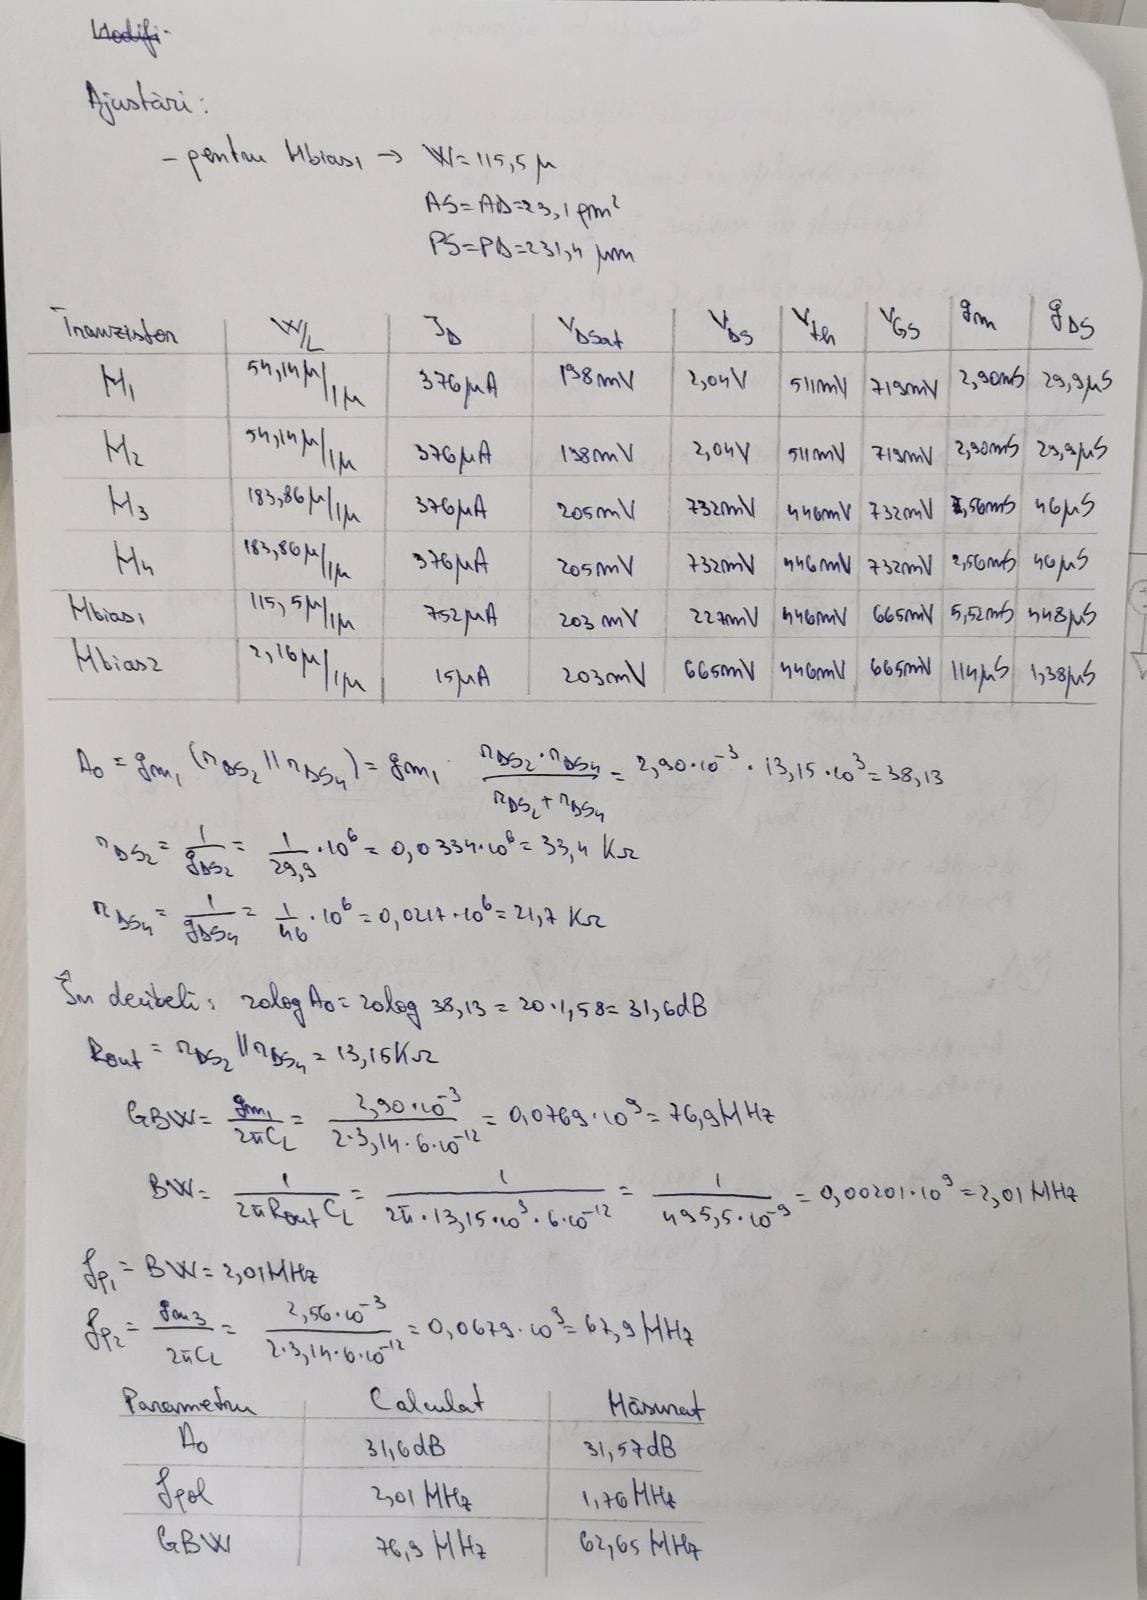 Modifi-
Ajustări:
- pentru Mbias1 → W=115,5 μ
AS=AD=23,1 pm²
PS=PD=231,4 μm
Tranzistor W/L ID VDSat VDS Vth VGS gm gDS
M1 54,14μ/1μ 376μA 198mV 2,04V 511mV 719mV 2,90mS 29,9μS
M2 54,14μ/1μ 376μA 198mV 2,04V 511mV 719mV 2,90mS 29,9μS
M3 183,86μ/1μ 376μA 205mV 732mV 446mV 732mV 2,56mS 46μS
M4 183,86μ/1μ 376μA 205mV 732mV 446mV 732mV 2,56mS 46μS
Mbias1 115,5μ/1μ 752μA 203mV 227mV 446mV 665mV 5,52mS 448μS
Mbias2 2,16μ/1μ 15μA 203mV 665mV 446mV 665mV 114μS 1,38μS
A0 = gm1 (rDS2 || rDS4) = gm1 · rDS2·rDS4 / (rDS2+rDS4) = 2,90·10⁻³ · 13,15·10³ = 38,13
rDS2 = 1/gDS2 = 1/29,9 ·10⁶ = 0,0334·10⁶ = 33,4 KΩ
rDS4 = 1/gDS4 = 1/46 ·10⁶ = 0,0217·10⁶ = 21,7 KΩ
În decibeli: 20log A0 = 20log 38,13 = 20·1,58 = 31,6dB
Rout = rDS2 || rDS4 = 13,15KΩ
GBW = gm1/2πCL = 2,90·10⁻³ / 2·3,14·6·10⁻¹² = 0,0769·10⁹ = 76,9MHz
BW = 1/2πRoutCL = 1/2π·13,15·10³·6·10⁻¹² = 1/495,5·10⁻⁹ = 0,00201·10⁹ = 2,01 MHz
fp1 = BW = 2,01MHz
fp2 = gm3/2πCL = 2,56·10⁻³ / 2·3,14·6·10⁻¹² = 0,0679·10⁹ = 67,9 MHz
Parametru Calculat Măsurat
A0 31,6dB 31,57dB
fpol 2,01 MHz 1,76 MHz
GBW 76,9 MHz 62,65 MHz